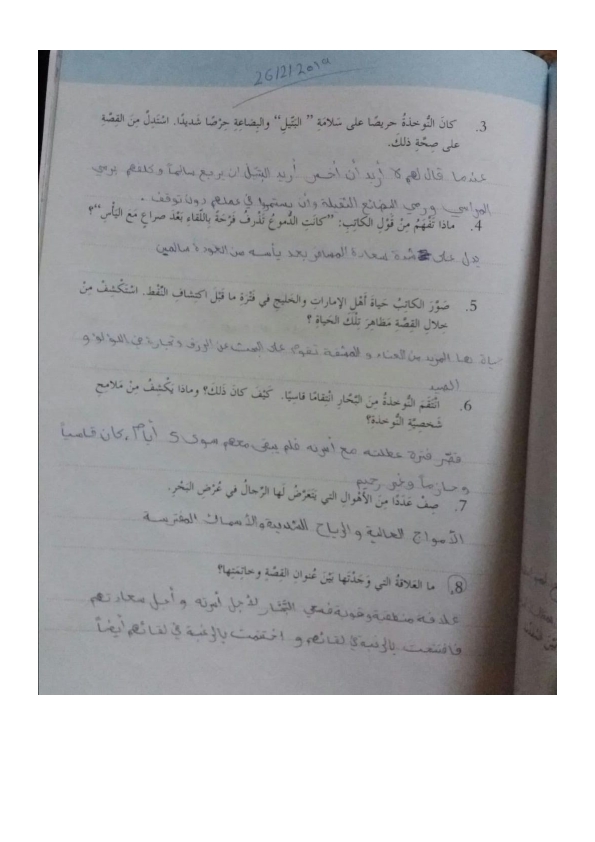 26/2/2019
3. كانَ النُّوخذةُ حريصًا على سَلامَةِ " البَتّيلِ" والبِضاعَةِ حِرْصًا شَديدًا. اسْتَدِلَّ مِنَ القِصَّةِ
على صِحَّةِ ذلكَ.
عندما قال لهم لا أريد أن أخسر أريد البتيل ان يرجع سالماً وكلفهم برمي
المراسي ورمي البضائع الثقيلة وأن يستمروا في عملهم دون توقف .
4. ماذا تَفْهَمُ مِنْ قَوْلِ الكاتِبِ: "كانَت الدُّموعُ تَذْرفُ فَرْحَةً بِاللِّقاءِ بَعْدَ صراعٍ مَعَ اليَأْسِ"؟
يدل على شدة سعادة المسافر بعد يأسه من العودة سالمين
5. صَوَّرَ الكاتِبُ حَياةَ أَهْلِ الإماراتِ والخَليجِ في فَتْرَةِ ما قَبْلَ اكْتِشافِ النَّفْطِ. اسْتَكْشِفْ مِنْ
خلالِ القِصَّةِ مَظاهِرَ تِلْكَ الحَياةِ ؟
حياة بها المزيد من العناء و المشقة تقوم على البحث عن الرزق و تجارة في اللؤلؤ و
الصيد
6. انْتَقَمَ النُّوخذةُ مِنَ البَّحّارِ انْتِقامًا قاسِيًا. كَيْفَ كانَ ذلكَ؟ وماذا يَكْشِفُ مِنْ مَلامِحِ
شَخصِيَّةِ النُّوخذة؟
قصّر فترة عطلته مع أسرته فلم يبقى معهم سوى 5 أيام ، كان قاسياً
و حازماً وغير رحيم
7. صِفْ عَدَدًا مِنَ الأَهْوالِ التي يَتَعَرَّضُ لَها الرِّجالُ في عُرْضِ البَحْرِ.
الأمواج العالية و الرياح الشديدة والأسماك المفترسة
8. ما العَلاقةُ التي وَجَدْتَها بَيْنَ عُنوانِ القِصَّةِ وخاتِمَتِها؟
علاقة منطقية وقوية فسعي البحّار لأجل أسرته و أجل سعادتهم
فافتتحت بالرغبة في لقائهم و اختتمت بالرغبة في لقائهم أيضاً